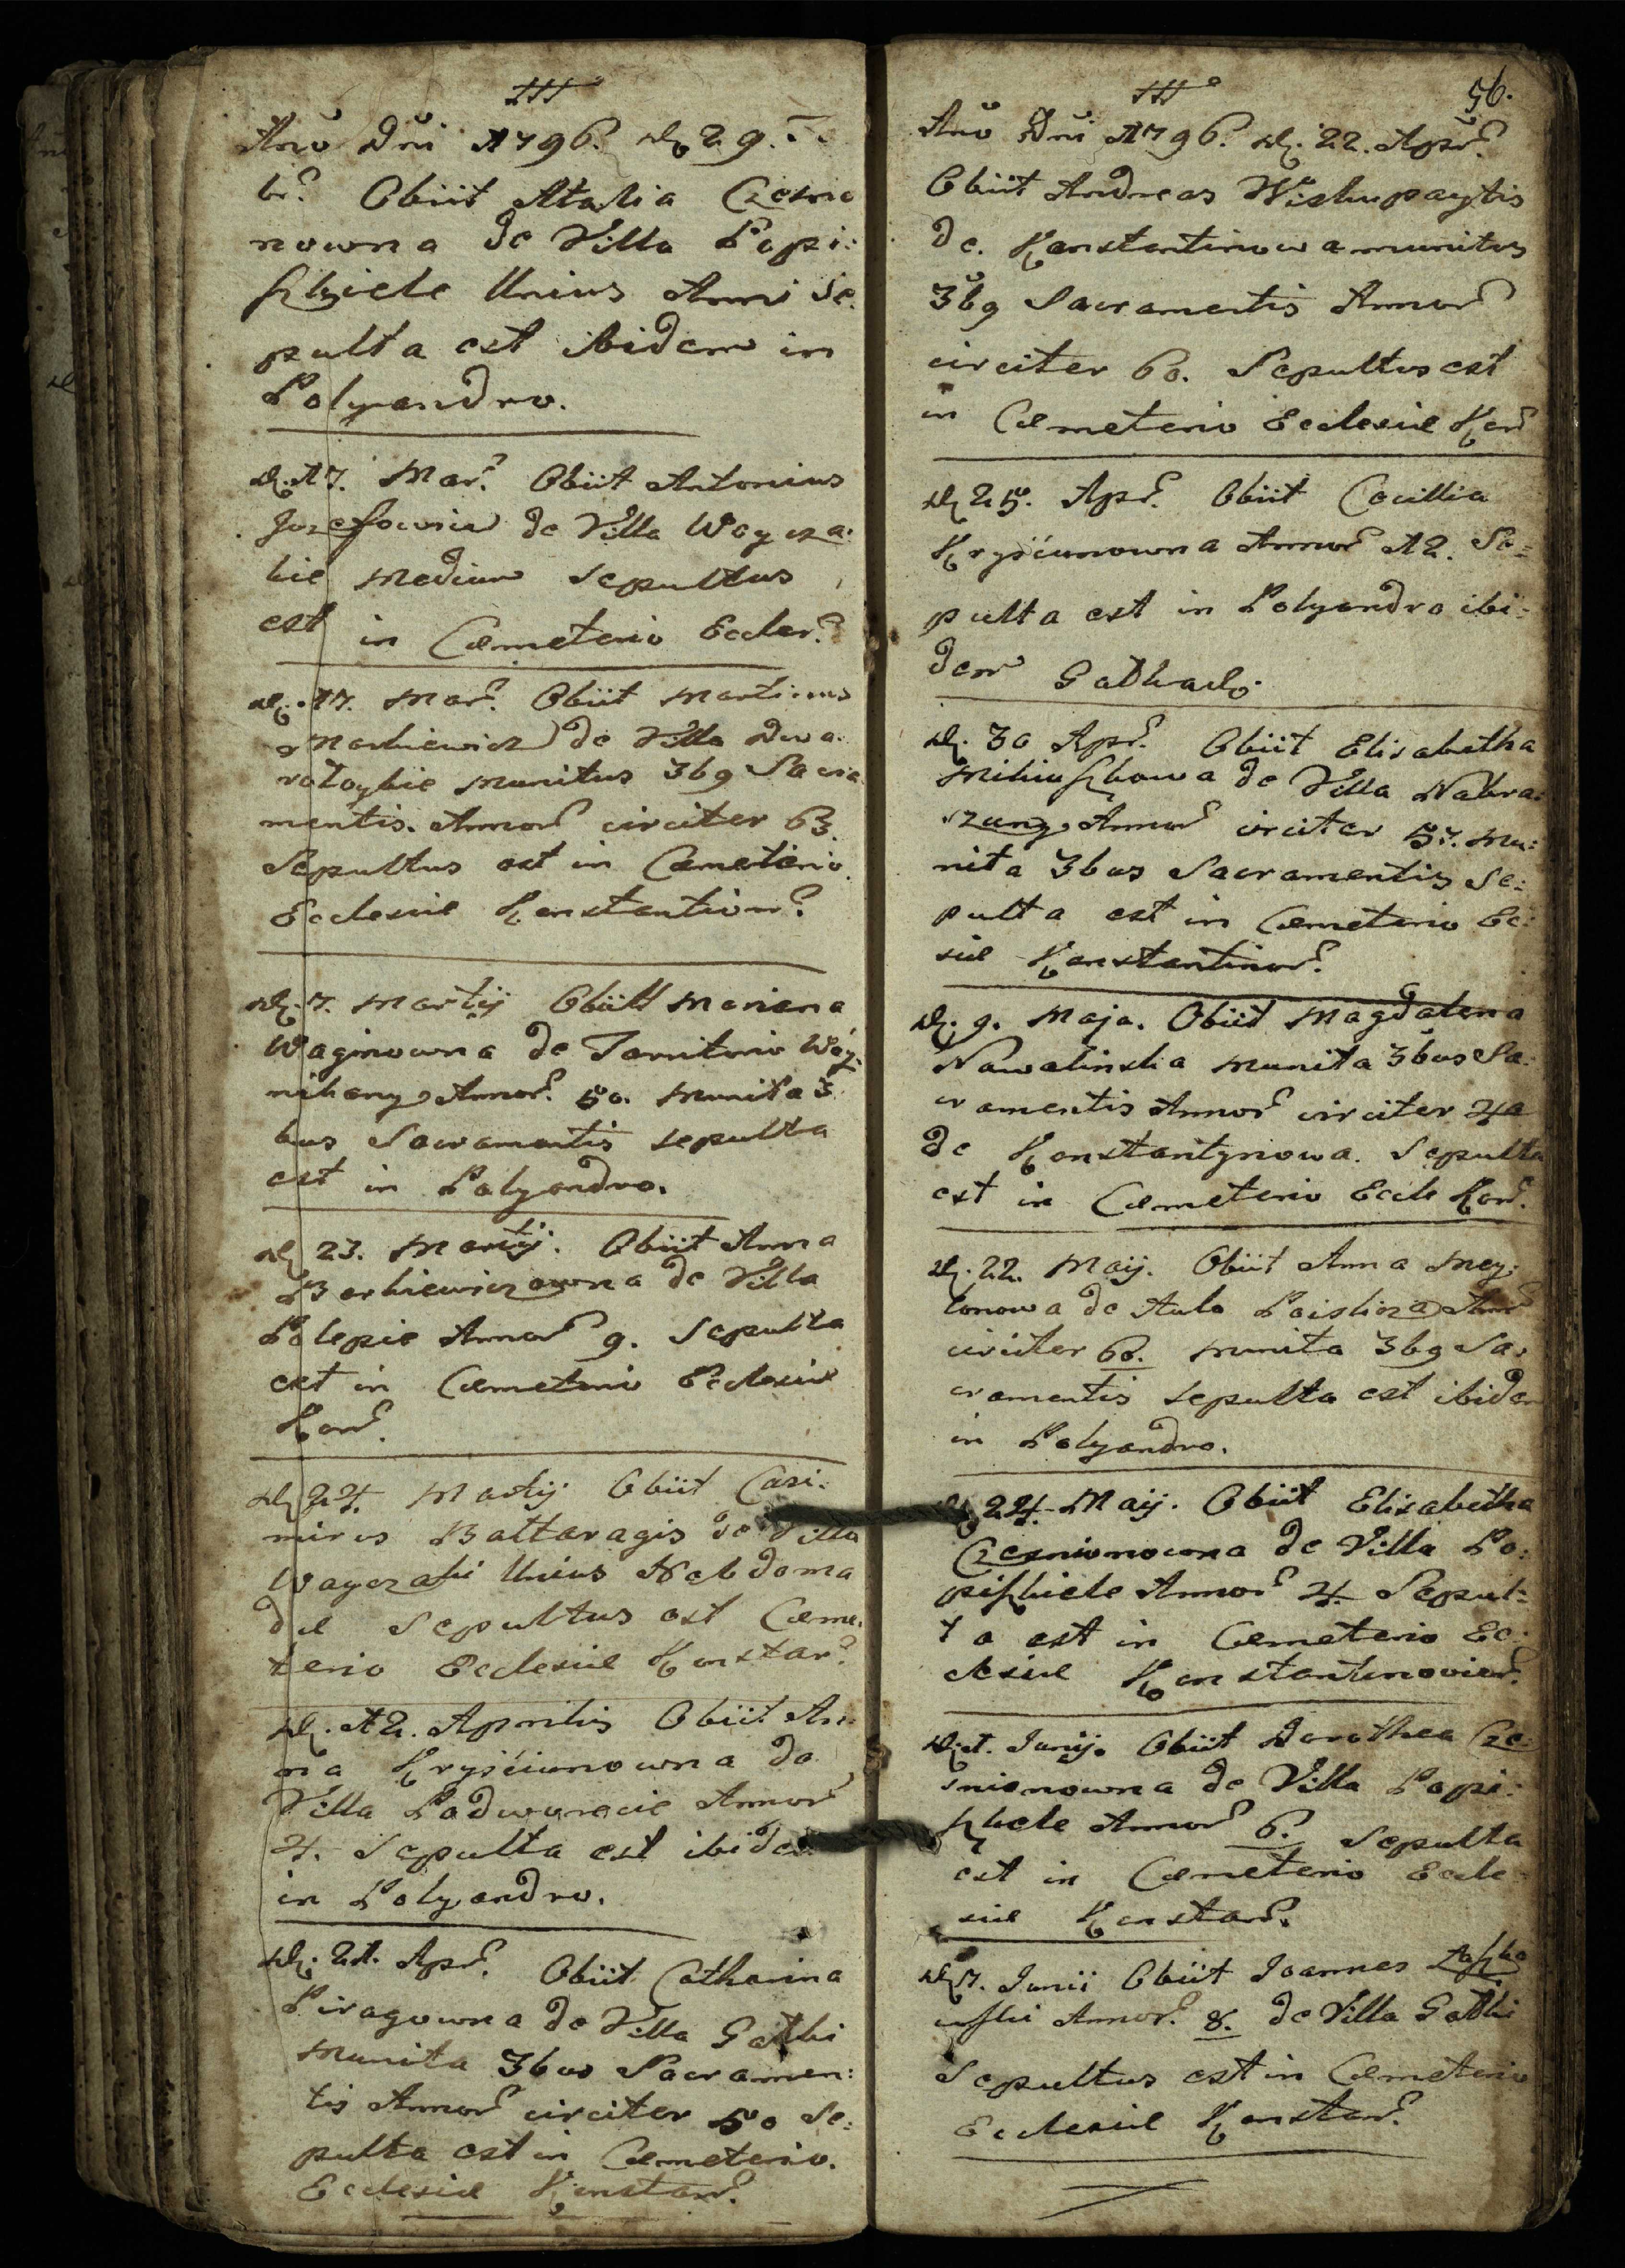 Ano Dni 1796. D. 29. Fe
br. Obiit Atalia Czesnio
nowna de Villa Popi:
szkiele Unius Anni Se
pulta est ibidem in
Polyandro.
D. 17. Mar. Obiit Antonius
Jozefowicz de Villa Woycza:
lie Medium Sepultus
est in Cæmeterio Eccles.
D. 17. Mar. Obiit Martinus
Markiewicz de Villa Dwa:
rotoykie Munitus 3bg Sacra
mentis. Annor circiter 63.
Sepultus est in Cæmeterio
Ecclesiæ Konstantinov.
D. 7. Martij Obiit Mariana
Waginowna de Territorio Woy:
nikany Annor. 50. Munita 3
bus Sacramentis sepulta
est in Polyandro.
D. 23. Martij. Obiit Anna
Borkiewiczowna de Villa
Polepie Annor 9. Sepulta
est in Cæmeterio Ecclesiæ
Kon.
D. 24. Martij Obiit Casi:
mirus Battaragis de Villa
Wayczaki Unius Hebdoma
dæ Sepultus est Cæme:
terio Ecclesiæ Konstan.
D. 12. Aprilis Obiit An:
na Kryściunowna de
Villa Podwaracie Annor
4. Sepulta est ibidem
in Polyandro.
D. 21. Apr. Obiit Catharina
Piragowna de Villa Gatki
Munita 3bus Sacramen:
tis Annor circiter 50 Se:
pulta est in Cæmeterio.
Ecclesiæ Konstan.
56.
Ano Dni 1796. D. 22. Apr.
Obiit Andreas Wiskupaytis
de. Konstantinowa munitus
3bg Sacramentis Annor
circiter 60. Sepultus est
in Cæmeterio Ecclesiæ Kon
D. 25. Apr. Obiit Cecillia
Kryściunowna Annor 12. Se=
pulta est in Polyandro ibi:
dem
D. 30 Apr. Obiit Elisabetha
Mikuszkowa de Villa Nabra:
zuny Annor circiter 57. Mu:
nita 3bus Sacramentis Se:
pulta est in Cæmeterio Ec:
siæ Konstantinov.
D. 9. Maja. Obiit Magdalena
Nawalinska Munita 3bus Sa:
cramentis Annor circiter 40
de Konstantynowa. Sepulta
est in Cæmeterio Eccle Kon.
D. 22. Maij. Obiit Anna Mey:
lonowa de Aula Annor
circiter 60. Munita 3bg Sa:
cramentis sepulta est ibidem
in Polyandro.
D. 24. Maij. Obiit Elisabetha
Czesnionowna de Villa Po:
piszkiele Annor 4. Sepul:
ta est in Cæmeterio Ec:
clesiæ Konstantinovien.
D. 1. Junij. Obiit Dorothea Cze:
snionowna de Villa Popi:
szkiele Annor 6. Sepulta
est in Cæmeterio Eccle
siæ Konstan.
D. 7. Junii Obiit Joannes
Annor. 8. de Villa Gatki
Sepultus est in Cæmeterio
Ecclesiæ Konstan.